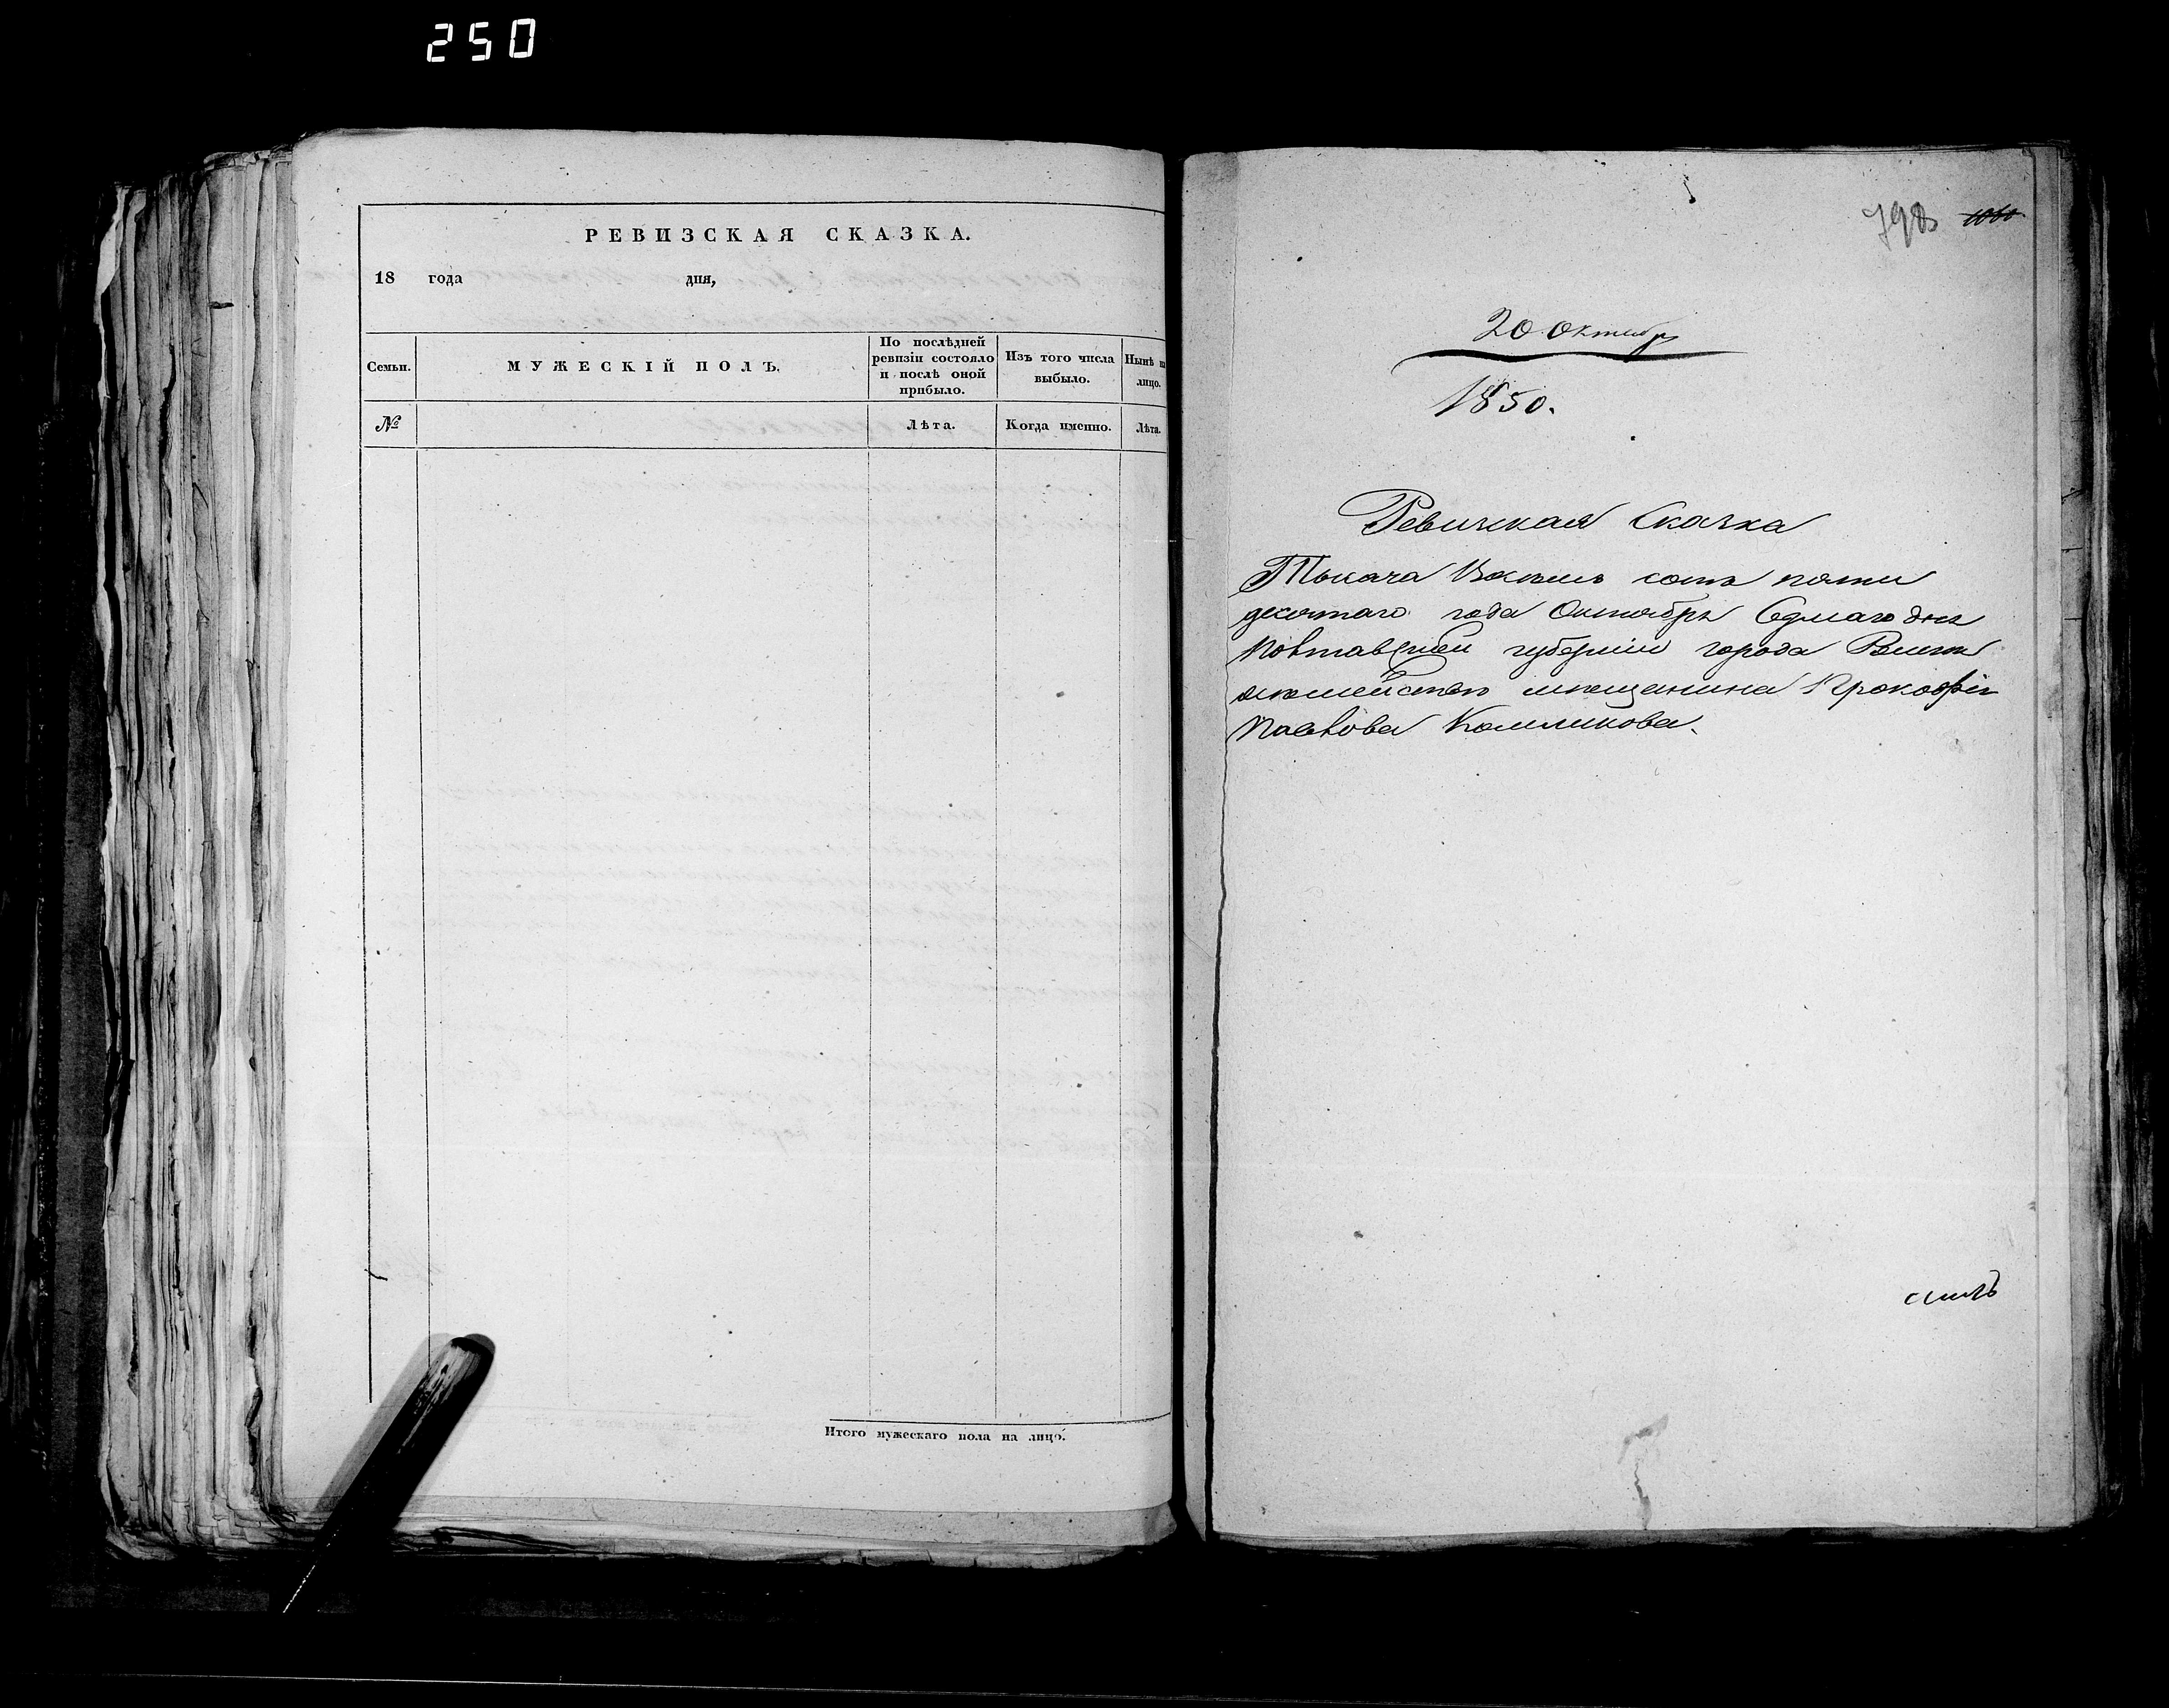 250
РЕВИЗСКАЯ СКАЗКА.
18 года дня,
Семьи.
МУЖЕСКІЙ ПОЛЪ.
По послѣдней
ревизіи состояло
и послѣ оной
прибыло.
Изъ того числа
выбыло.
Нынѣ на
лицо.
№
Лѣта.
Когда именно.
Лѣта.
Итого мужескаго пола на лицо.
798 1060
20 Октября
1850.
Ревизская Сказка
Тысяча Восемь сотъ пяти
десятаго года Октября Седмаго дня
Полтавской губерніи города
мѣщанина Прокофія
Павлова